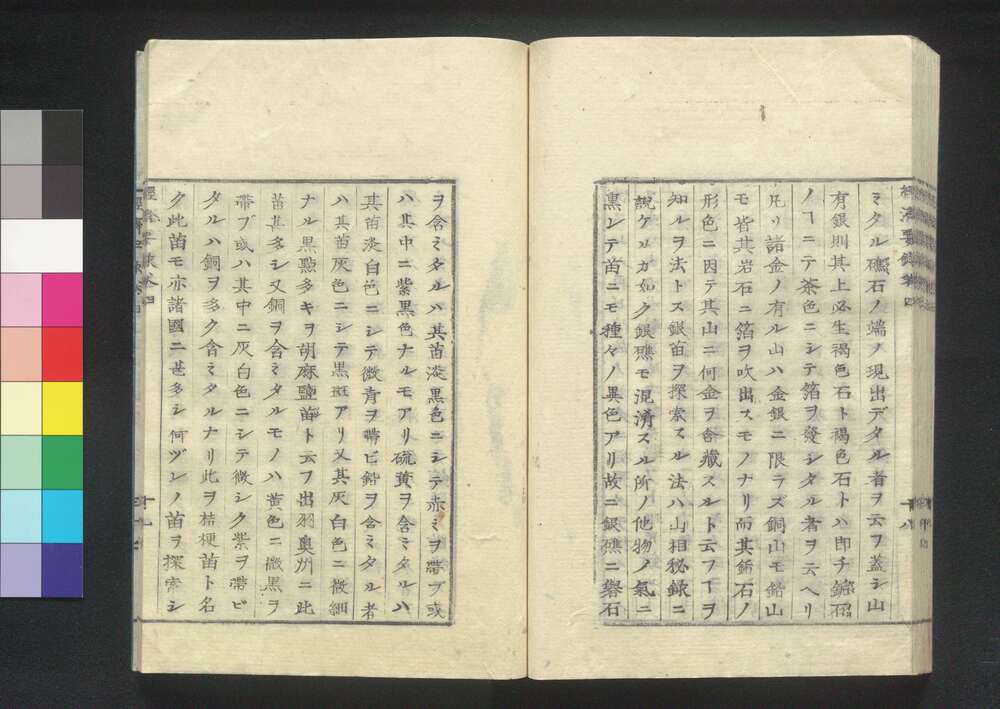 ミタル礁石ノ端ノ現出デタル者ヲ云フ蓋シ山
有銀則其上必生褐色石ト褐色石トハ即チ鉑石
ノヿニテ茶色ニシテ箔ヲ發シタル者ヲ云ヘリ
凡ソ諸金ノ有ル山ハ金銀ニ限ラズ銅山モ鉛山
モ皆其岩石ニ箔ヲ吹出スモノナリ而其鉑石ノ
形色ニ因テ其山ニ何金ヲ含藏スルト云フヿヲ
知ルヲ法トス銀苗ヲ探索スル法ハ山相秘録ニ
說ケルガ如ク銀礁モ混淆スル所ノ他物ノ氣ニ
黒シテ苗ニモ種々ノ異色アリ故ニ銀礁ニ礜石
經濟要錄卷四
十八
ヲ含ミタルハ其苗漆黒色ニシテ赤ミヲ帶ブ或
ハ其中ニ紫黒色ナルモアリ硫黄ヲ含ミタルハ
其苗淡白色ニシテ微青ヲ帶ビ鉛ヲ含ミタル者
ハ其苗灰色ニシテ黒斑アリ又其灰白色ニ微細
ナル黒點多キヲ胡麻鹽苗ト云フ出羽奥州ニ此
苗甚多シ又銅ヲ含ミタルモノハ黄色ニ微黒ヲ
帶ブ或ハ其中ニ灰白色ニシテ微シク紫ヲ帶ビ
タルハ銅ヲ多ク含ミタルナリ此ヲ桔梗苗ト名
ク此苗モ亦諸國ニ甚多シ何ヅレノ苗ヲ探索シ
經濟要錄卷四
十九